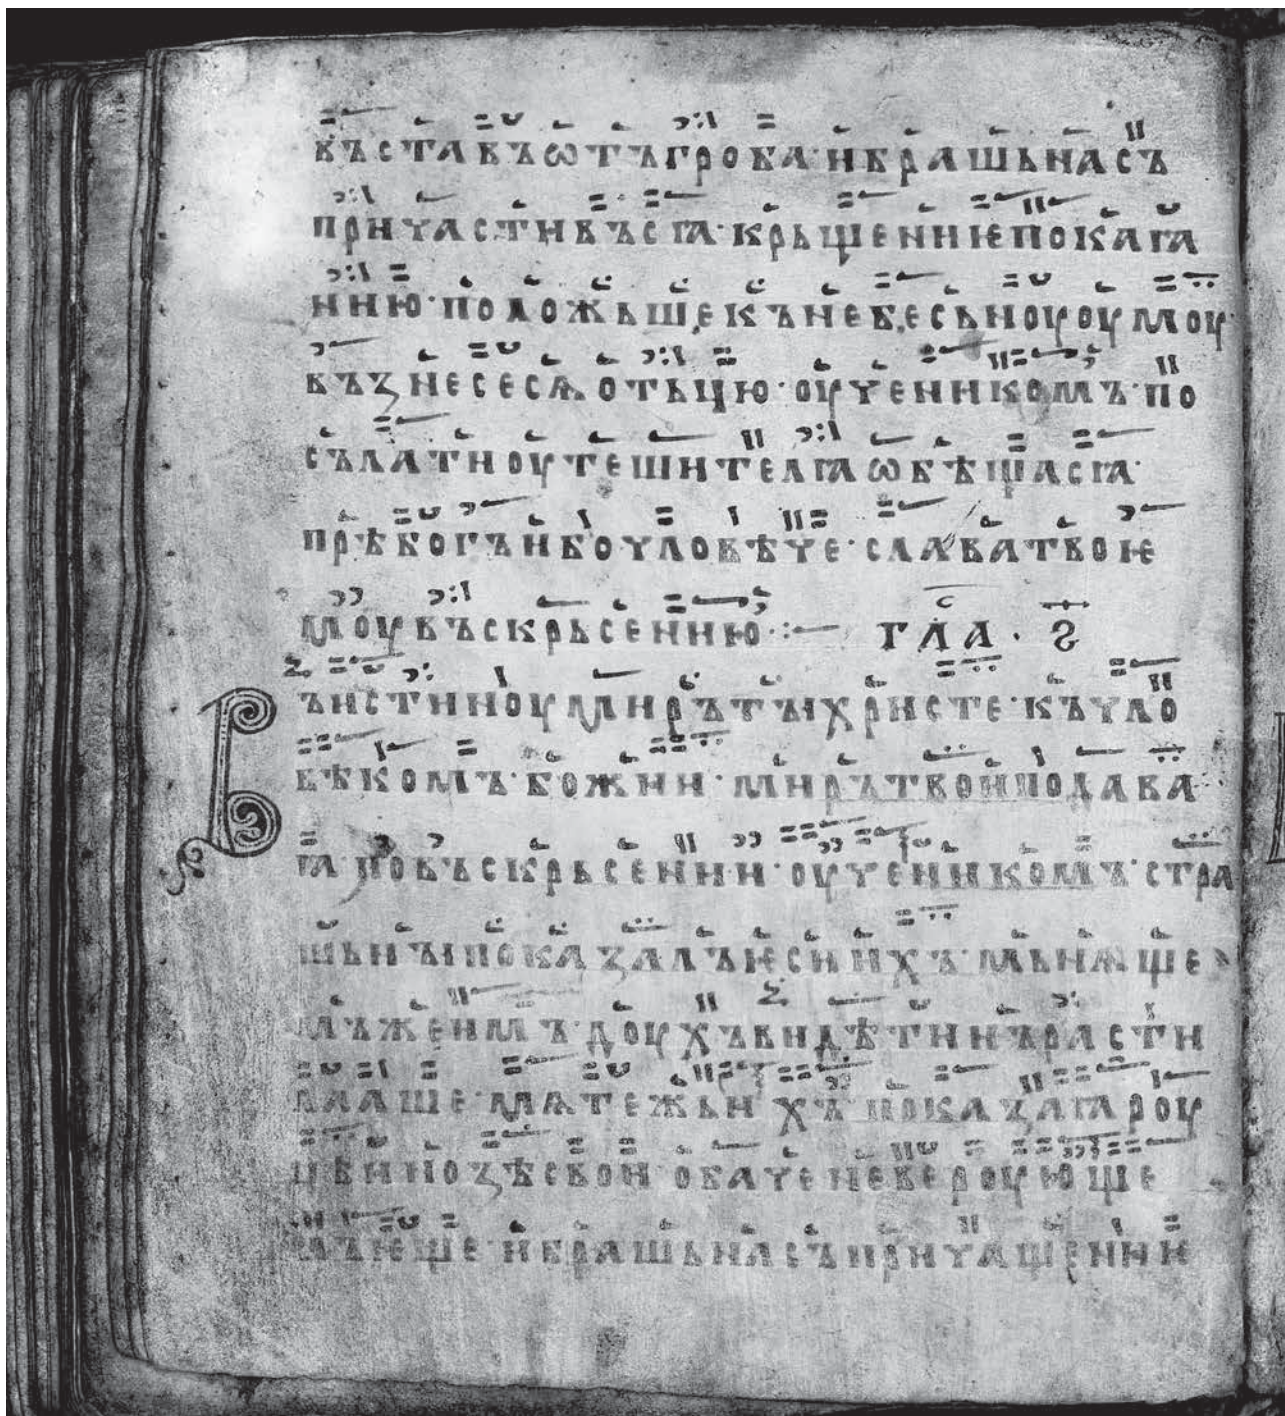 въставъ ѡтъ гроба· и брашьна съ
причасти въсꙗ· крьщениѥ покаꙗ
нию· положьше къ небесьноуоумоу·
възнесе сѧ отьцю· оученикомъ· по
сълати оутешителꙗ ѡбѣща сꙗ·
прѣбогъ и бо чловѣче· слава твоѥ
моу въскрьсению ·:— гла· ѕ
Въистиноу миръ ты христе· къ чло
вѣкомъ· божии· миръ твои подава
ꙗ· по въскрьсении· оученикомъ· стра
шьны показалъ ѥси ихъ· мьнѧще
мъ же имъ доухъ видѣти нъ расти
ꙗше мѧтежь ихъ показаꙗ роу
цѣ и нозѣ свои· обаче не вероующе
мъ ѥще· и брашьна съпричащении